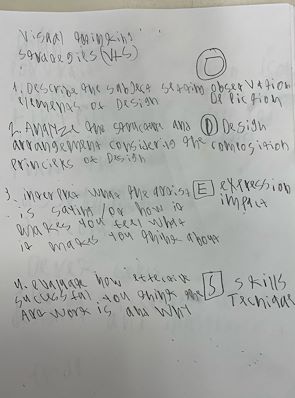 Visual thinking
strategies (VTS)
O
1. Describe the subject setting observation
elements of Design Depiction
2. Analyze the structure and D Design
arrangement considering the composition
principles of Design
3. interpret what the artist E expression
is saying / or how it impact
makes you feel what
it makes you think about
4. evaluate how effective S skills
successful you think the Technique
Art work is and why